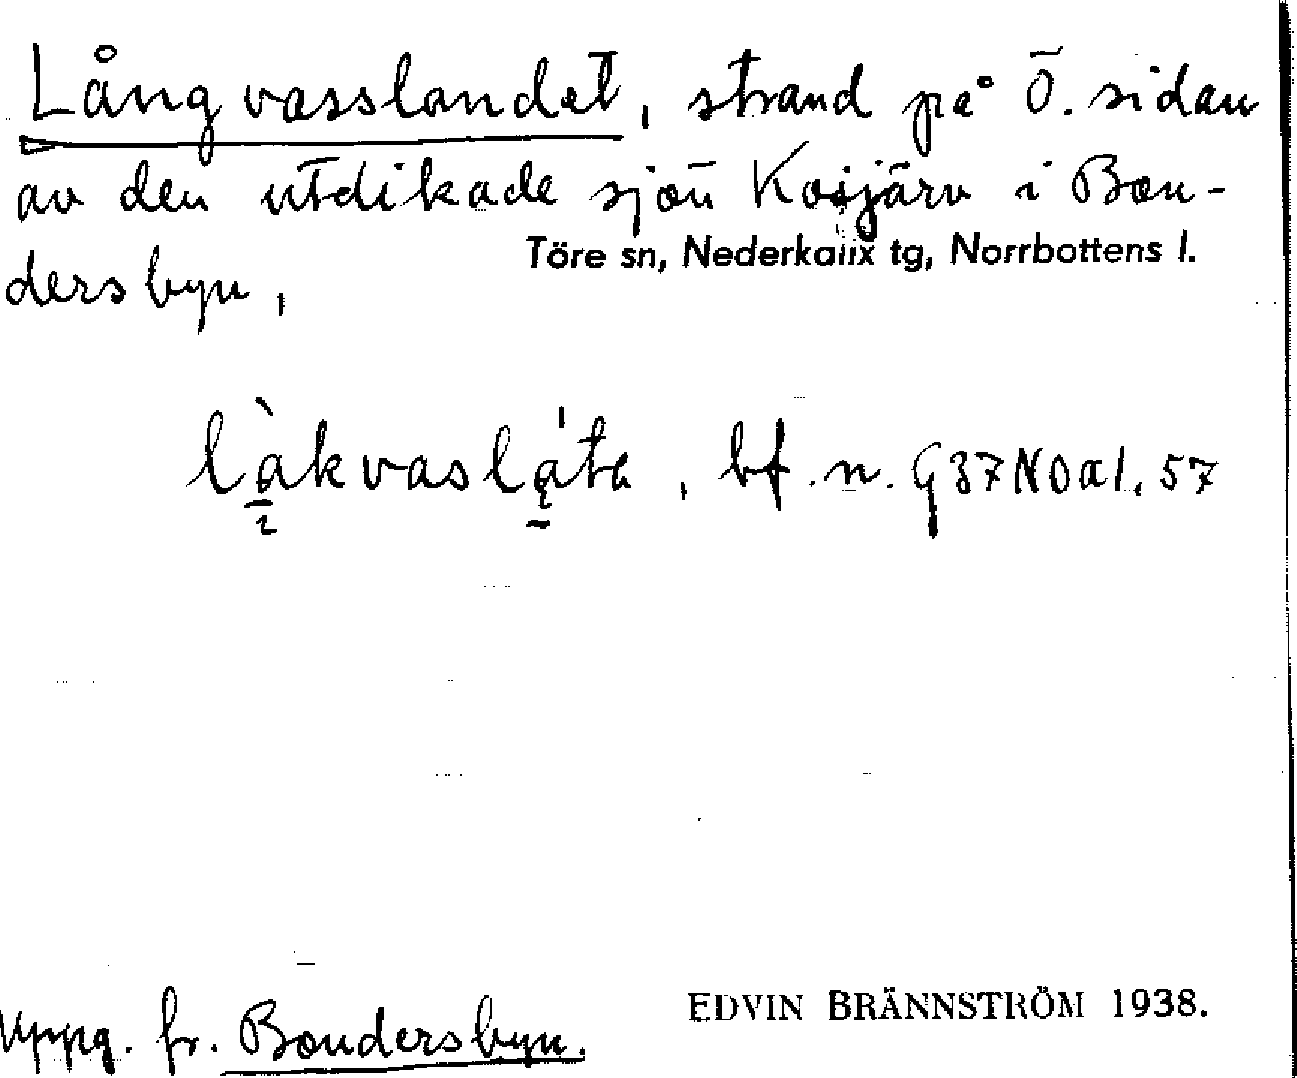 Långvasslandet, strand på Ö. sidan
av den utdikade sjön Kosjärv i Bon-
Töre sn, Nederkalix tg, Norrbottens l.
dersbyn,
bf. n. G37NOal. 57
Uppg. fr. Bondersbyn.
EDVIN BRÄNNSTRÖM 1938.